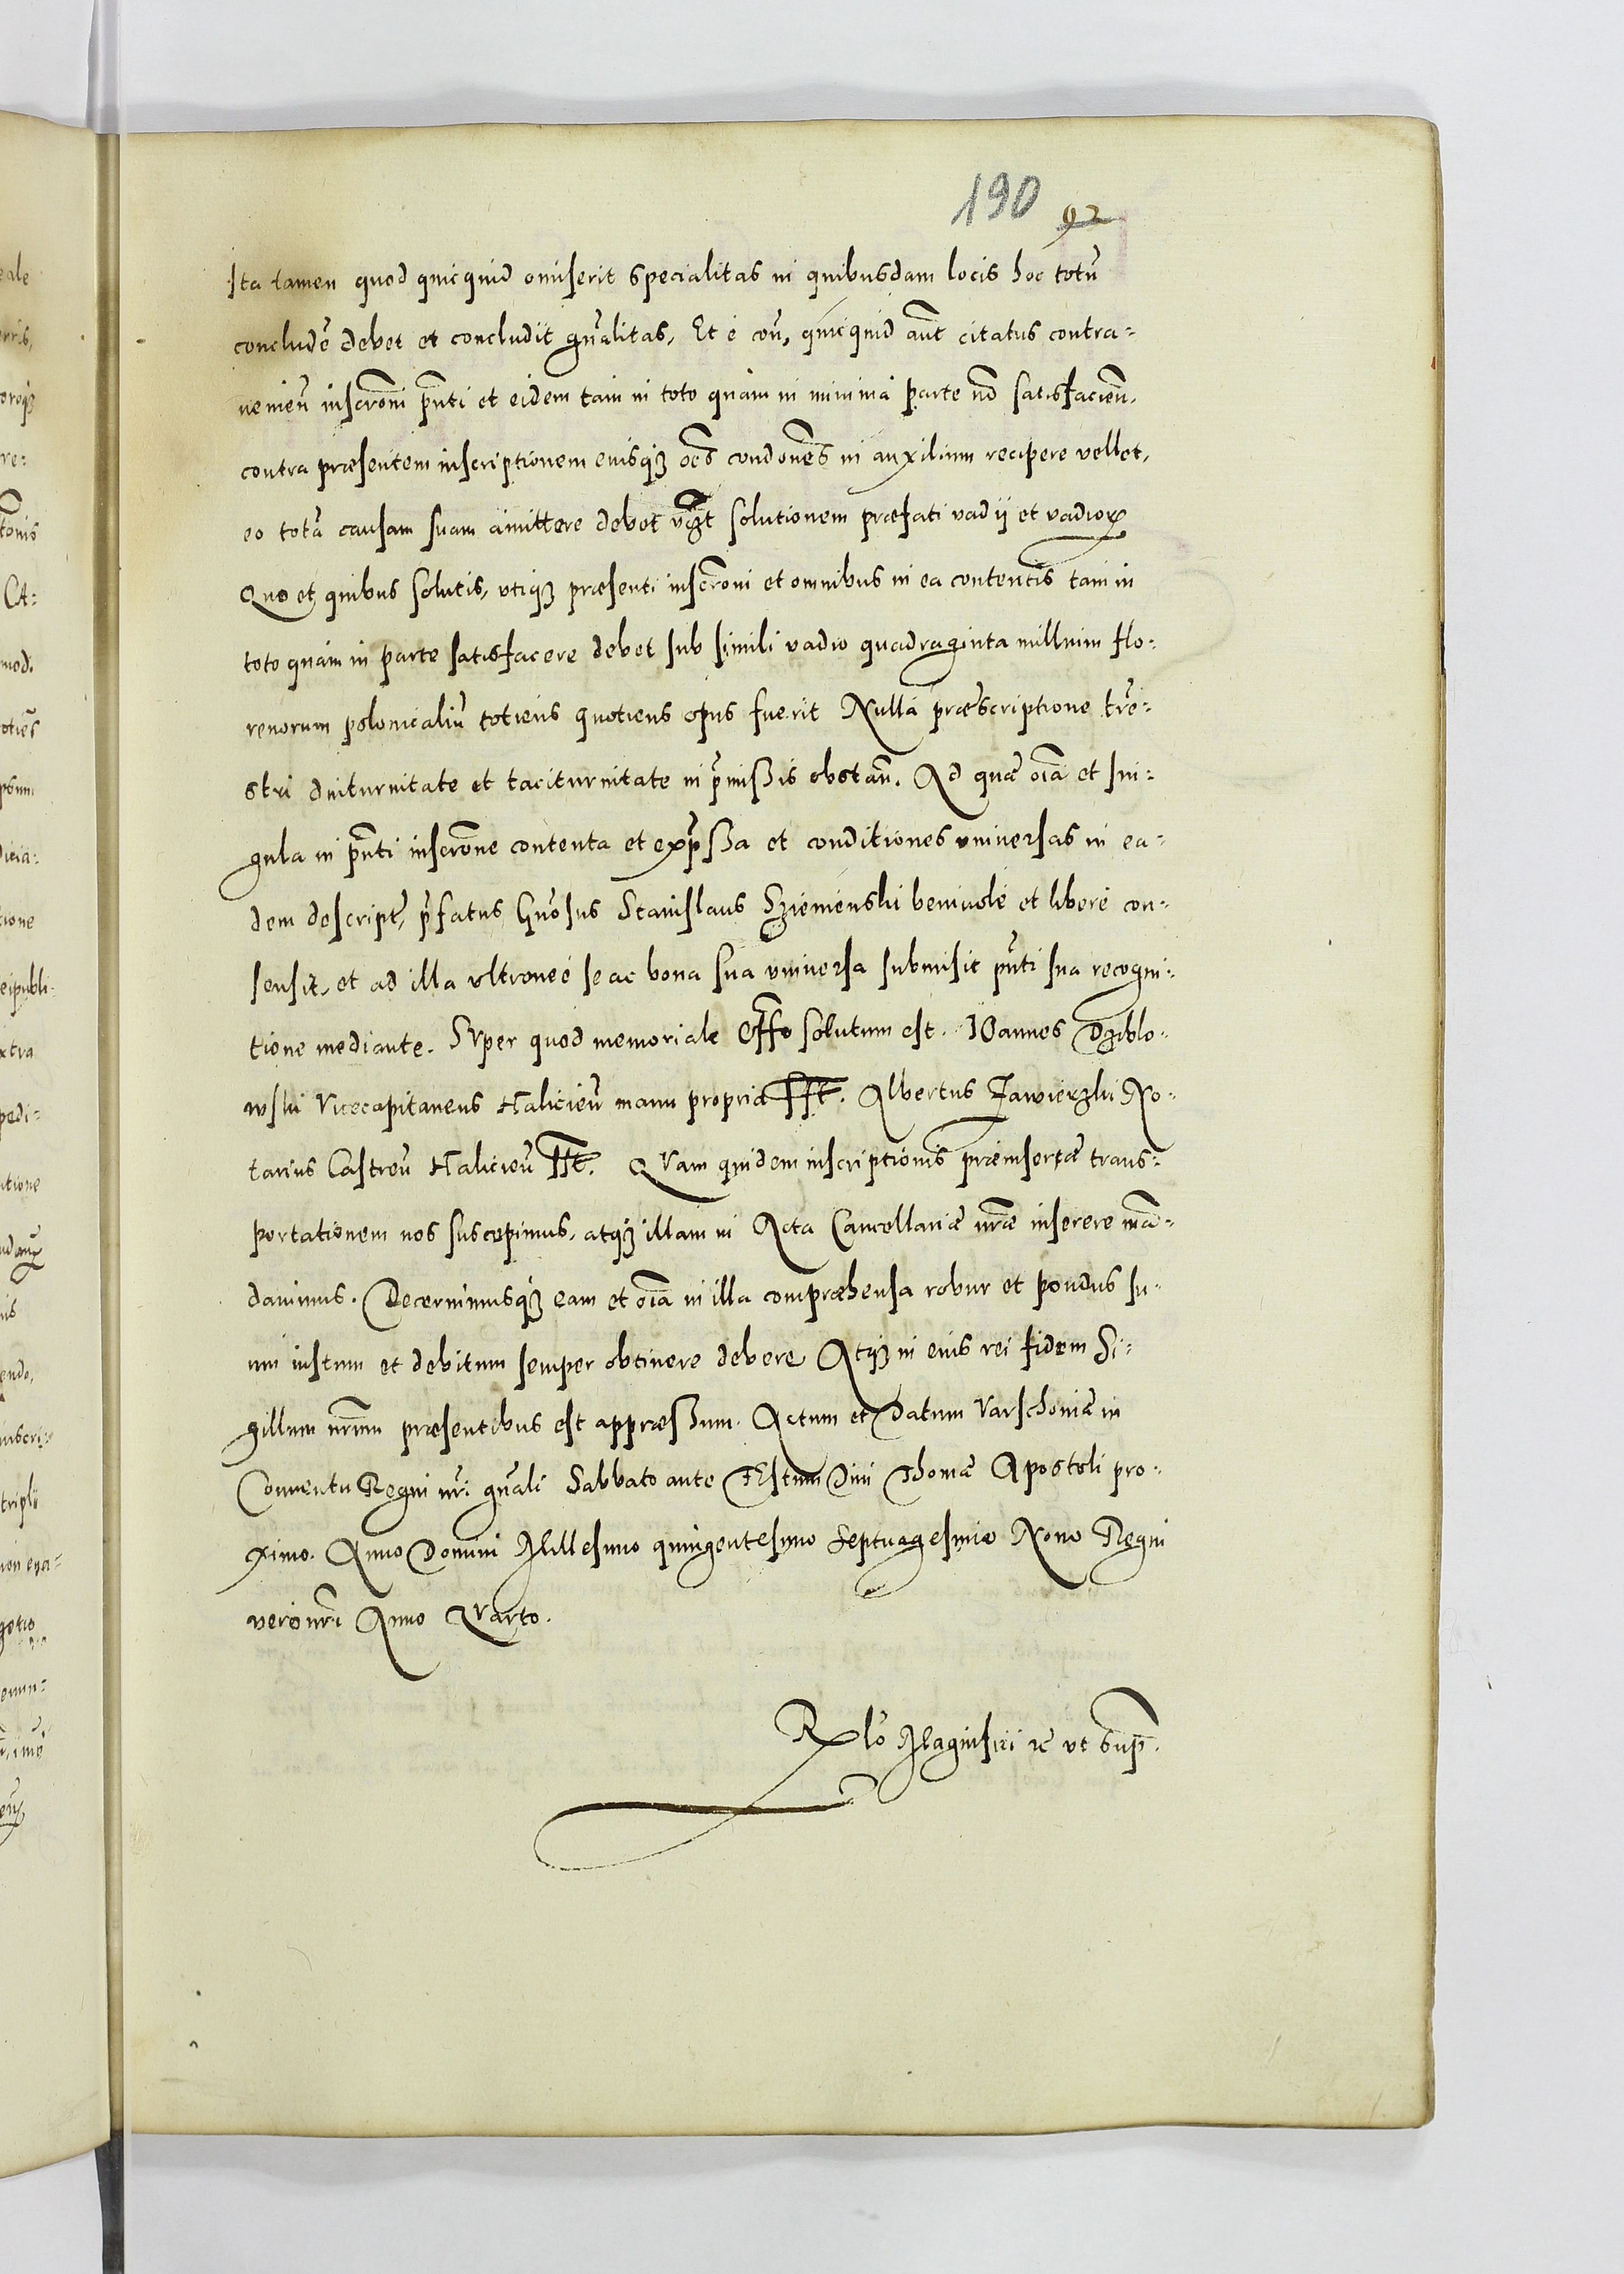 190 92
Ita tamen quod quicquid omiserit specialitas in quibusdam locis hoc totũ
concludẽ debet et concludit gñalitas, Et è cõ, quicquid aũt citatus contra=
ueniẽ inscrõni pñti et eidem tam in toto quàm in minima parte nõ satisfacieñ.
contra præsentem inscriptionem eiusq3 oẽs condõnes in auxilium recipere vellet,
eo totã causam suam amittere debet solutionem præfati vadij et vadioꝝ
Quo et quibus solutis, vtiq3 præsenti inscrõni et omnibus in ea contentis tam in
toto quàm in parte satisfacere debet sub simili vadio quadraginta millium flo=
renorum polonicaliũ totiens quotiens opus fuerit Nulla præscriptione trẽ=
stri diuturnitate et taciturnitate in p̃missis obstañ. Ad quæ oĩa et sin=
gula in pñti inscrõne contenta et exp̃ssa et conditiones vniuersas in ea=
dem descript, p̃fatus Gñosus Stanislaus Sziemienski beniuolè et liberè con=
sensit, et ad illa vltroneè se ac bona sua vniuersa submisit pñti sua recogni=
tione mediante. SVper quod memoriale Offo solutum est. IOannes Dziblo=
wski Vicecapitaneus Halicieñ manu propria sst. Albertus Zawierzki No=
tarius Castreñ Halicieñ sst. QVam quidem inscriptionis præinsertæ trans=
portationem nos suscepimus, atq3 illam in Acta Cancellariæ nr̃æ inserere mã=
dauimus. Decernimusq3 eam et oĩa in illa compræhensa robur et pondus su=
um iustum et debitum semper obtinere debere Atq3 in eius rei fidem Si=
gillum nr̃um præsentibus est appræssum. Actum et Datum Varschouiæ in
Conuentu Regni nr̃i gñali Sabbato ante Festum Diui Thomæ Apostoli pro=
ximo. Anno Domini Millesimo quingentesimo Septuagesimo Nono Regni
verò nr̃i Anno QVarto.
Rlõ Magnifici &c vt Sup̃.